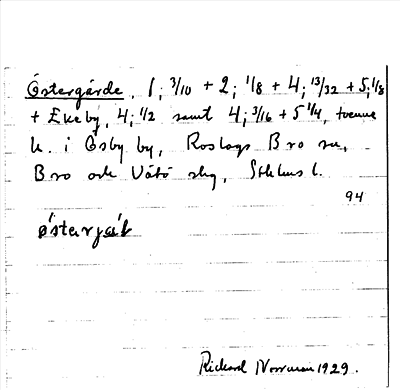 Östergårde, 1; 3/10 + 2; 1/8 + 4; 13/32 + 5; 1/8
+ Ekeby, 4; 1/2 samt 4; 3/16 + 5 1/4, tvenne
h. i Ösby by, Roslags Bro sn,
Bro och Vätö skg, Sthlms l.
94
Rickard Norrman 1929.